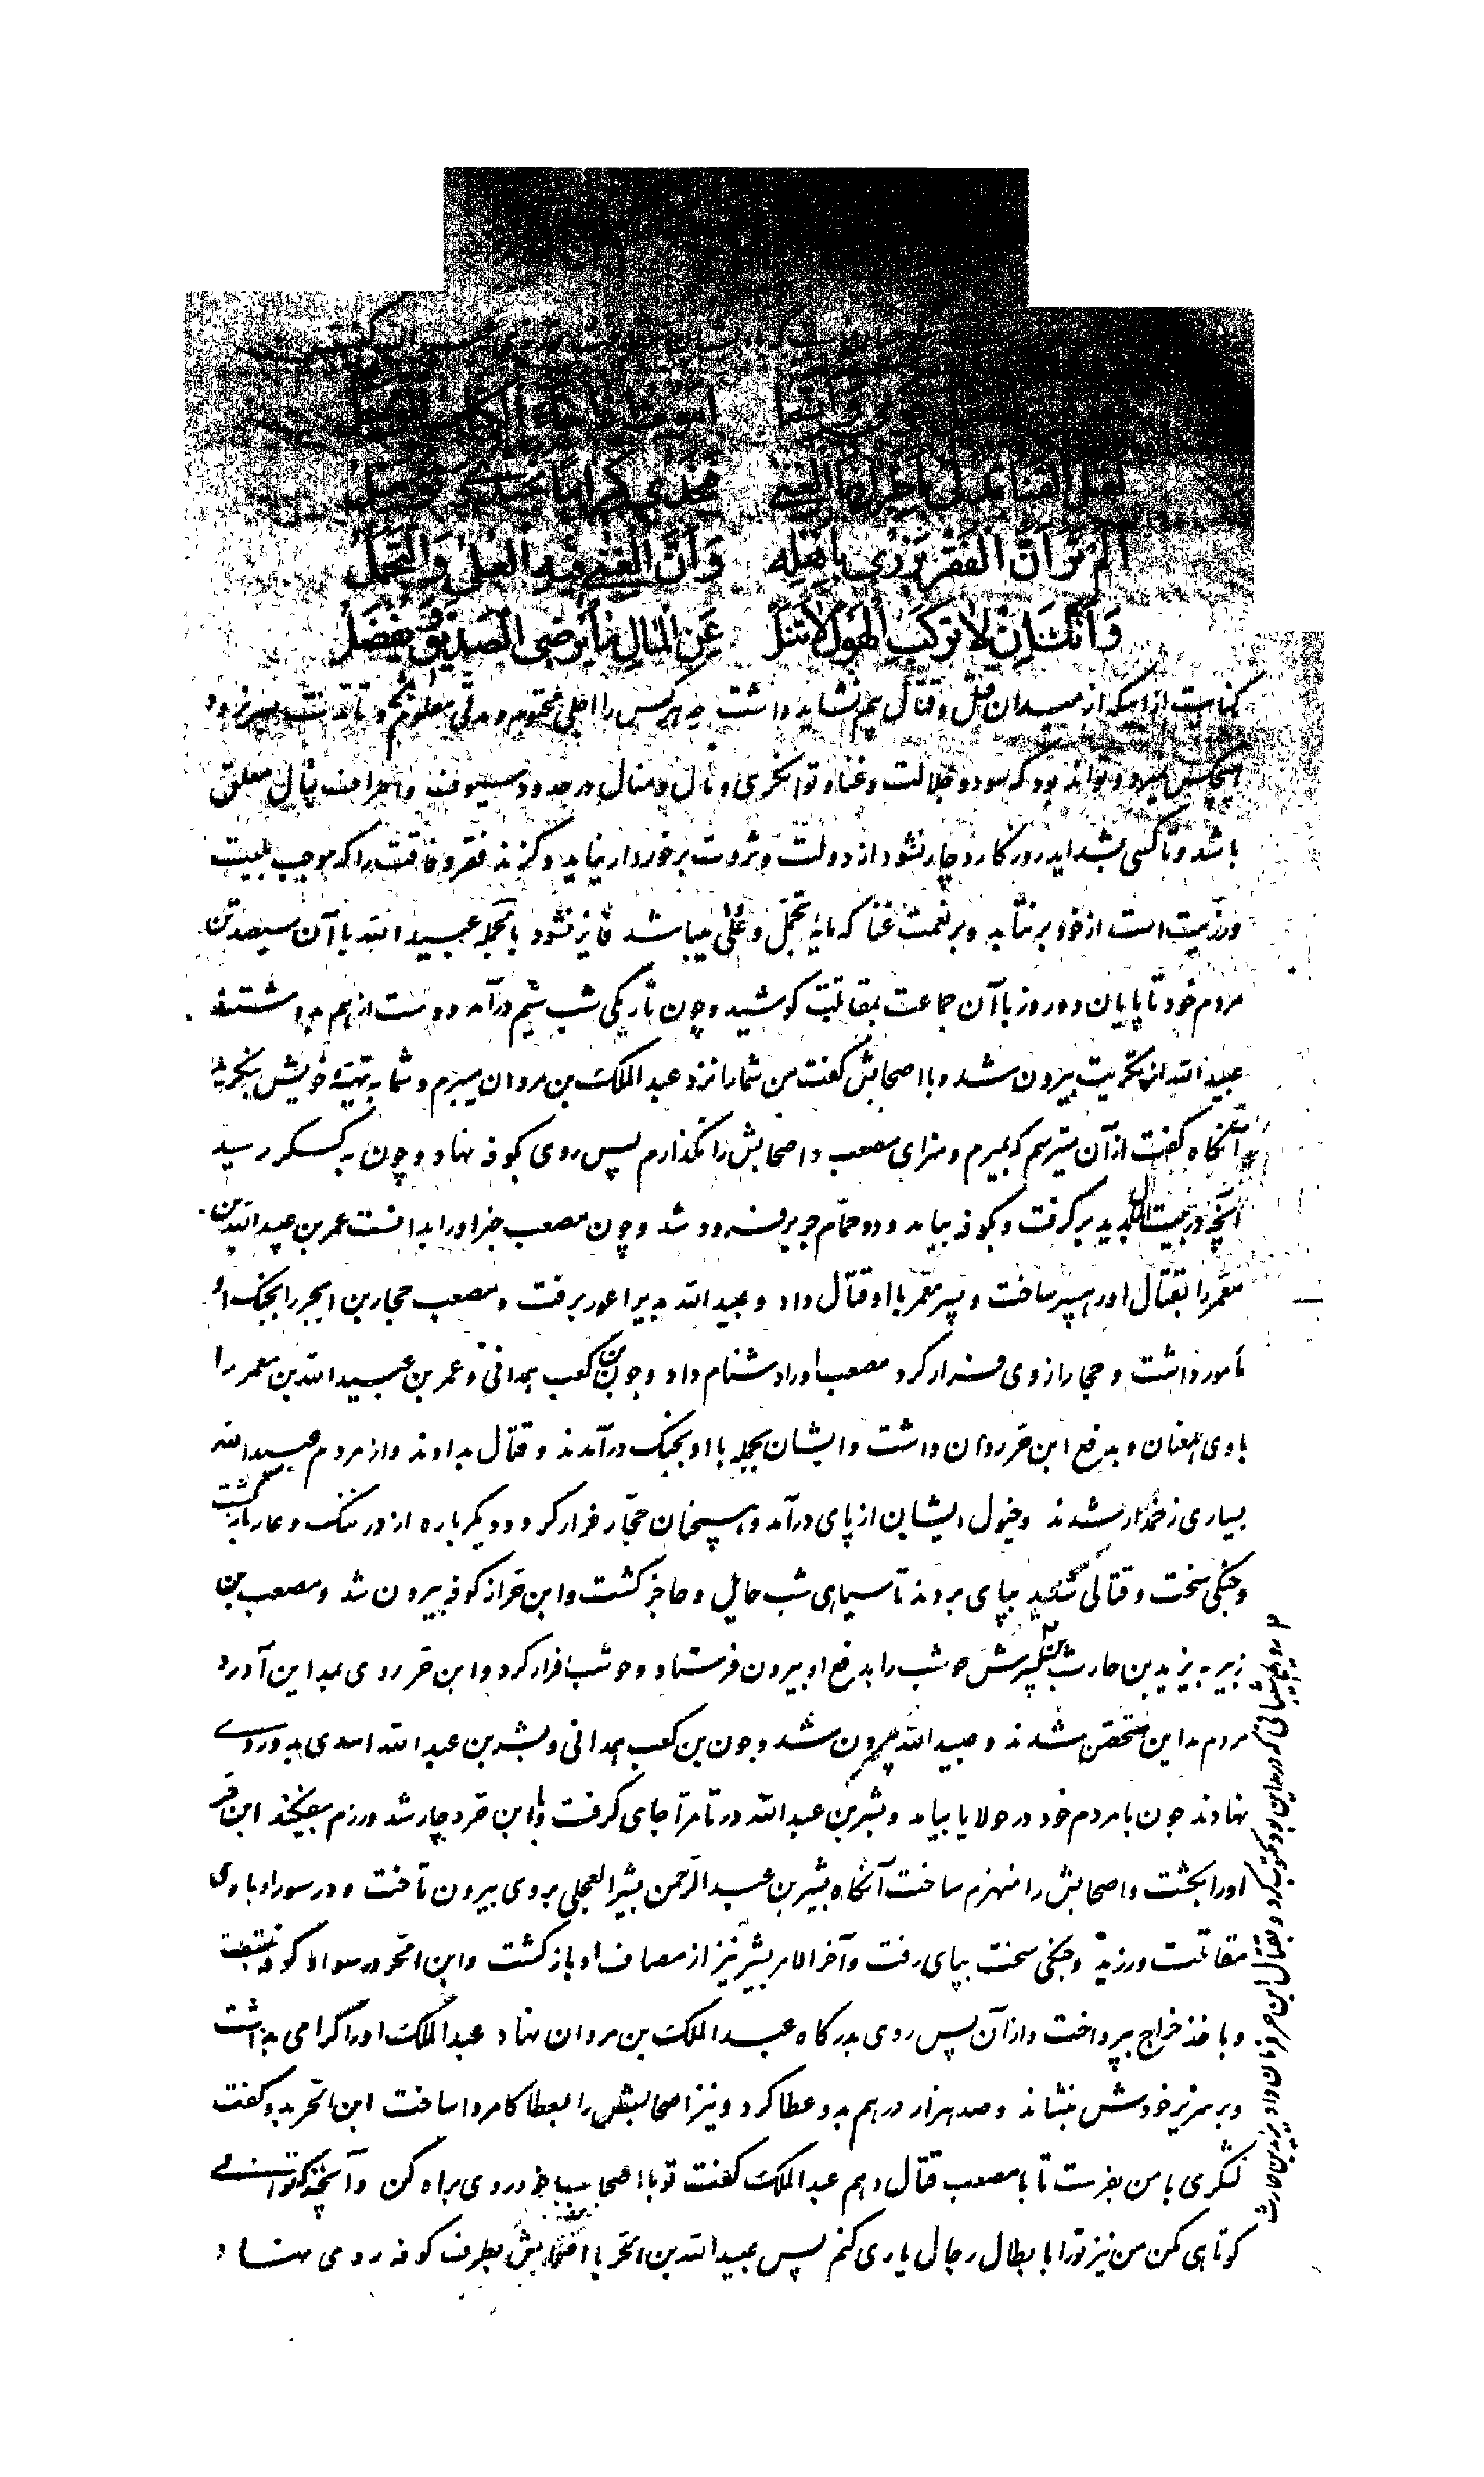 لعل القنا تدنی باطرافها الغنی فنحیی کراما نجتدی و نؤمل
الم تر ان الفقر یزری باهله وَاَنَّ الغنی فیه العلی وَالتجمل
وَاَنَّکَ اِنْ لا ترکب الهول لا تنل عَنِ المالِ ما یرضی الصدیق و یفضل
کنایت از اینکه از میدان قتل و قتال بیم نشاید داشت چه هرکس را اجلی محتوم و مدتی معلوم و تا مدت بسر نرود
هیچکس نمیرد و تواند بود که سود و جلالت و غنا و توانگری و مال و منال در حدود سیوف و اطراف نبال معلق
باشد و تا کسی بشداید روزگار دچار نشود از دولت و ثروت برخوردار نیاید و گزند فقر و فاقت را که موجب بلیت
ورزیت است از خود برنتابد و بر نعمت غنا که مایه تجمل و علی میباشد فایز نشود بالجمله عبید الله با آن سیصد تن
مردم خود تا پایان دو روز با آن جماعت بمقاتلت کوشید و چون تاریکی شب بهم درآمد و دست از هم بداشتند
عبید الله از تکریت بیرون شد و با اصحابش گفت من شما را نزد عبد الملک بن مروان میبرم و شما به تهیه خویش بنگرید
آنگاه گفت از آن میترسم که بمیرم و سزای مصعب و اصحابش را نگذارم پس روی بکوفه نهاد و چون به کسکر رسید
آنچه در بیت المال بدید برگرفت و بکوفه بیامد و در حمام جریر فرود شد و چون مصعب خبر او را بدانست عمر بن عبید الله بن
معمر را بقتال او رهسپر ساخت و پسر معمر با او قتال داد و عبید الله به دیر اعور برفت و مصعب حجار بن ابجر را بجنگ او
مأمور داشت و حجار از وی فرار کرد مصعب او را دشنام داد و جون بن کعب همدانی و عمر بن عبید الله بن معمر را
با وی همعنان و بدفع ابن حر روان داشت و ایشان بجمله با او بجنگ درآمدند و قتال بدادند و از مردم عبید الله
بسیاری زخمدار شدند و خیول ایشان از پای درآمد و همچنان حجار فرار کرد و دیگر باره از در ننگ و عار بازگشت
و جنگی سخت و قتالی شدید بپای بردند تا سیاهی شب حایل و حاجز گشت و ابن حر از کوفه بیرون شد و مصعب بن
زبیر به یزید بن حارث بن پسرش حوشب را بدفع او بیرون فرستاد و حوشب فرار کرد و ابن حر روی بمداین آورد
مردم مداین متحصن شدند و عبید الله بیرون شد و جون بن کعب همدانی و بشر بن عبد الله اسدی بدو روی
نهادند جون با مردم خود در حولایا بیامد و بشر بن عبد الله در تامرا جای گرفت و با ابن حر دچار شد و رزم بیفکند ابن حر
او را بکشت و اصحابش را منهزم ساخت آنگاه بشیر بن عبد الرحمن بشیر العجلی بروی بیرون تاخت و در سورا با وی
مقاتلت ورزید و جنگی سخت بپای رفت و آخر الامر بشیر نیز از مصاف او بازگشت و ابن الحر در سواد کوفه بنشست
و باخذ خراج بپرداخت و از آن پس روی بدرگاه عبد الملک بن مروان نهاد عبد الملک او را گرامی بداشت
و بر سریر خودش بنشاند و صد هزار درهم بدو عطا کرد و نیز اصحابش را بعطا کامروا ساخت ابن الحر بدو گفت
لشگری با من بفرست تا با مصعب قتال دهم عبد الملک گفت تو با اصحاب خود روی براه کن و آنچه توانی
کوتاهی مکن من نیز تو را با بطال رجال یاری کنم پس عبید الله بن الحر با اصحابش بطرف کوفه روی نهاد
رویم شیبانی که در مداین بود مکتوب کرد و بقتال ابن حر فرمان داد یزید بن حارث